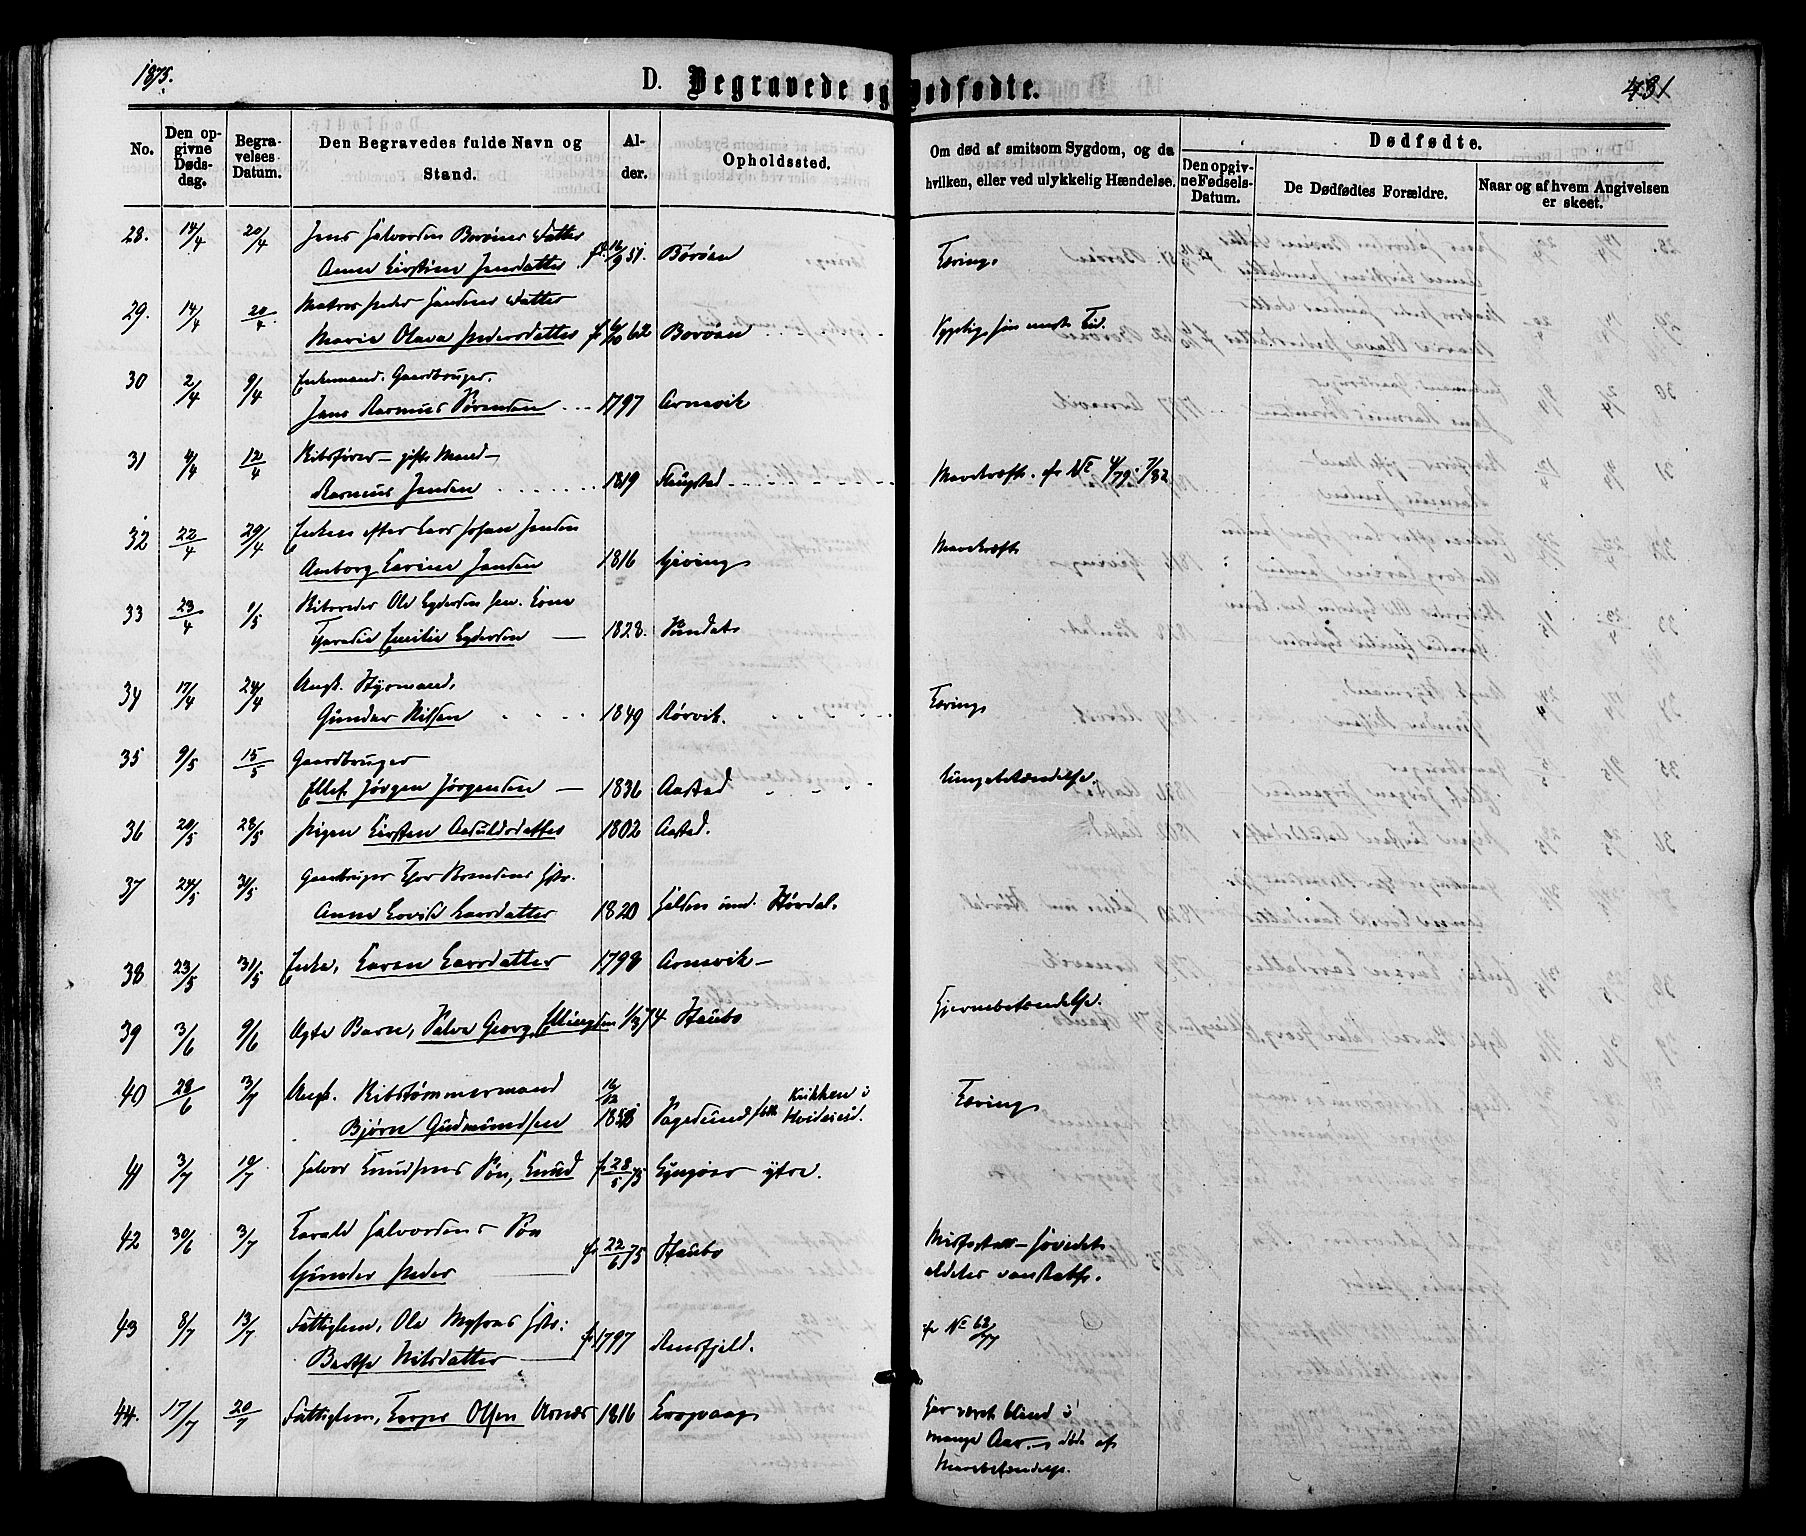 1875.
D. Begravede og Dødfødte.
431
No.
Den opgivne Dødsdag.
Begravelses Datum.
Den Begravedes fulde Navn og Stand.
Alder.
Opholdssted.
Om død af smitsom Sygdom, og da hvilken, eller ved ulykkelig Hændelse.
Dødfødte.
Den opgivne Fødsels-Datum.
De Dødfødtes Forældre.
Naar og af hvem Angivelsen er skeet.
28. 14/4 20/4 Jens Halvorsen Borøens Datter
Anne Kirstine Jensdatter f. 16/9 51. Borøen Tæring
29. 14/4 20/4 Matros Peder Datter
Marie Olava Pedersdatter f. 6/10 62 Borøen
30 2/4 9/4 Enkemand. Gaardbruger.
Jens Rasmus Sørensen 1797 Arnevik
31 4/4 12/4 Skibsfører - gift Mand -
Rasmus Jensen 1819 Flaugstad Mavekræft. cfr No 4/79. 7/82
32 22/4 29/4 Enken efter Lars Johan Jensen
Anborg Karine Jensen 1816 Gjeving Mavekræft
33 23/4 1/5 Skibsreder Ole Eydersen sen. Kone
Emilie Eydersen 1828. Sundet
34 17/4 24/4 Ungk. Styrmand,
Gunder Nilsen 1849 Rørvik. Tæring
35 9/5 15/5 Gaardbruger
Ellef Jørgen Jørgensen 1836 Aastad Lungebetændelse.
36 20/5 28/5 Pigen Kirsten Aasuldsdatter 1802 Aastad.
37 24/5 31/5 Gaardbruger Thor Hstr.
Anne Lovise Larsdatter 1820 Holden
38 23/5 31/5 Enke, Karen Larsdatter 1798 Arnevik
39 3/6 9/6 Ægte Barn, Salve Georg Ellingsen 74 Staubø Hjernebetændelse.
40 28/6 3/7 Ungk. Skibstømmermand
Bjørn Gudmundsen 16/12 1850 Sagesund Krikken i Hvideseid. Tæring
41 3/7 10/7 Halvor Knudsens Søn, Knud f. 28/5 75 Lyngøer ytre.
42 30/6 3/7 Harald Halvorsens Søn
Gunder Peder f. 22/6 75 Staubø Misfostret - Hovedet aldeles vanskabt.
43 8/7 13/7 Fattiglem, Ole Hstr:
Berthe Nilsdatter f. 1797 Rensfjeld. cfr No 62/77
44. 17/7 20/7 Fattiglem, Olsen Usnes 1816 Krogvaag Har været blind i
mange Aar - døde af
Mavebetændelse.